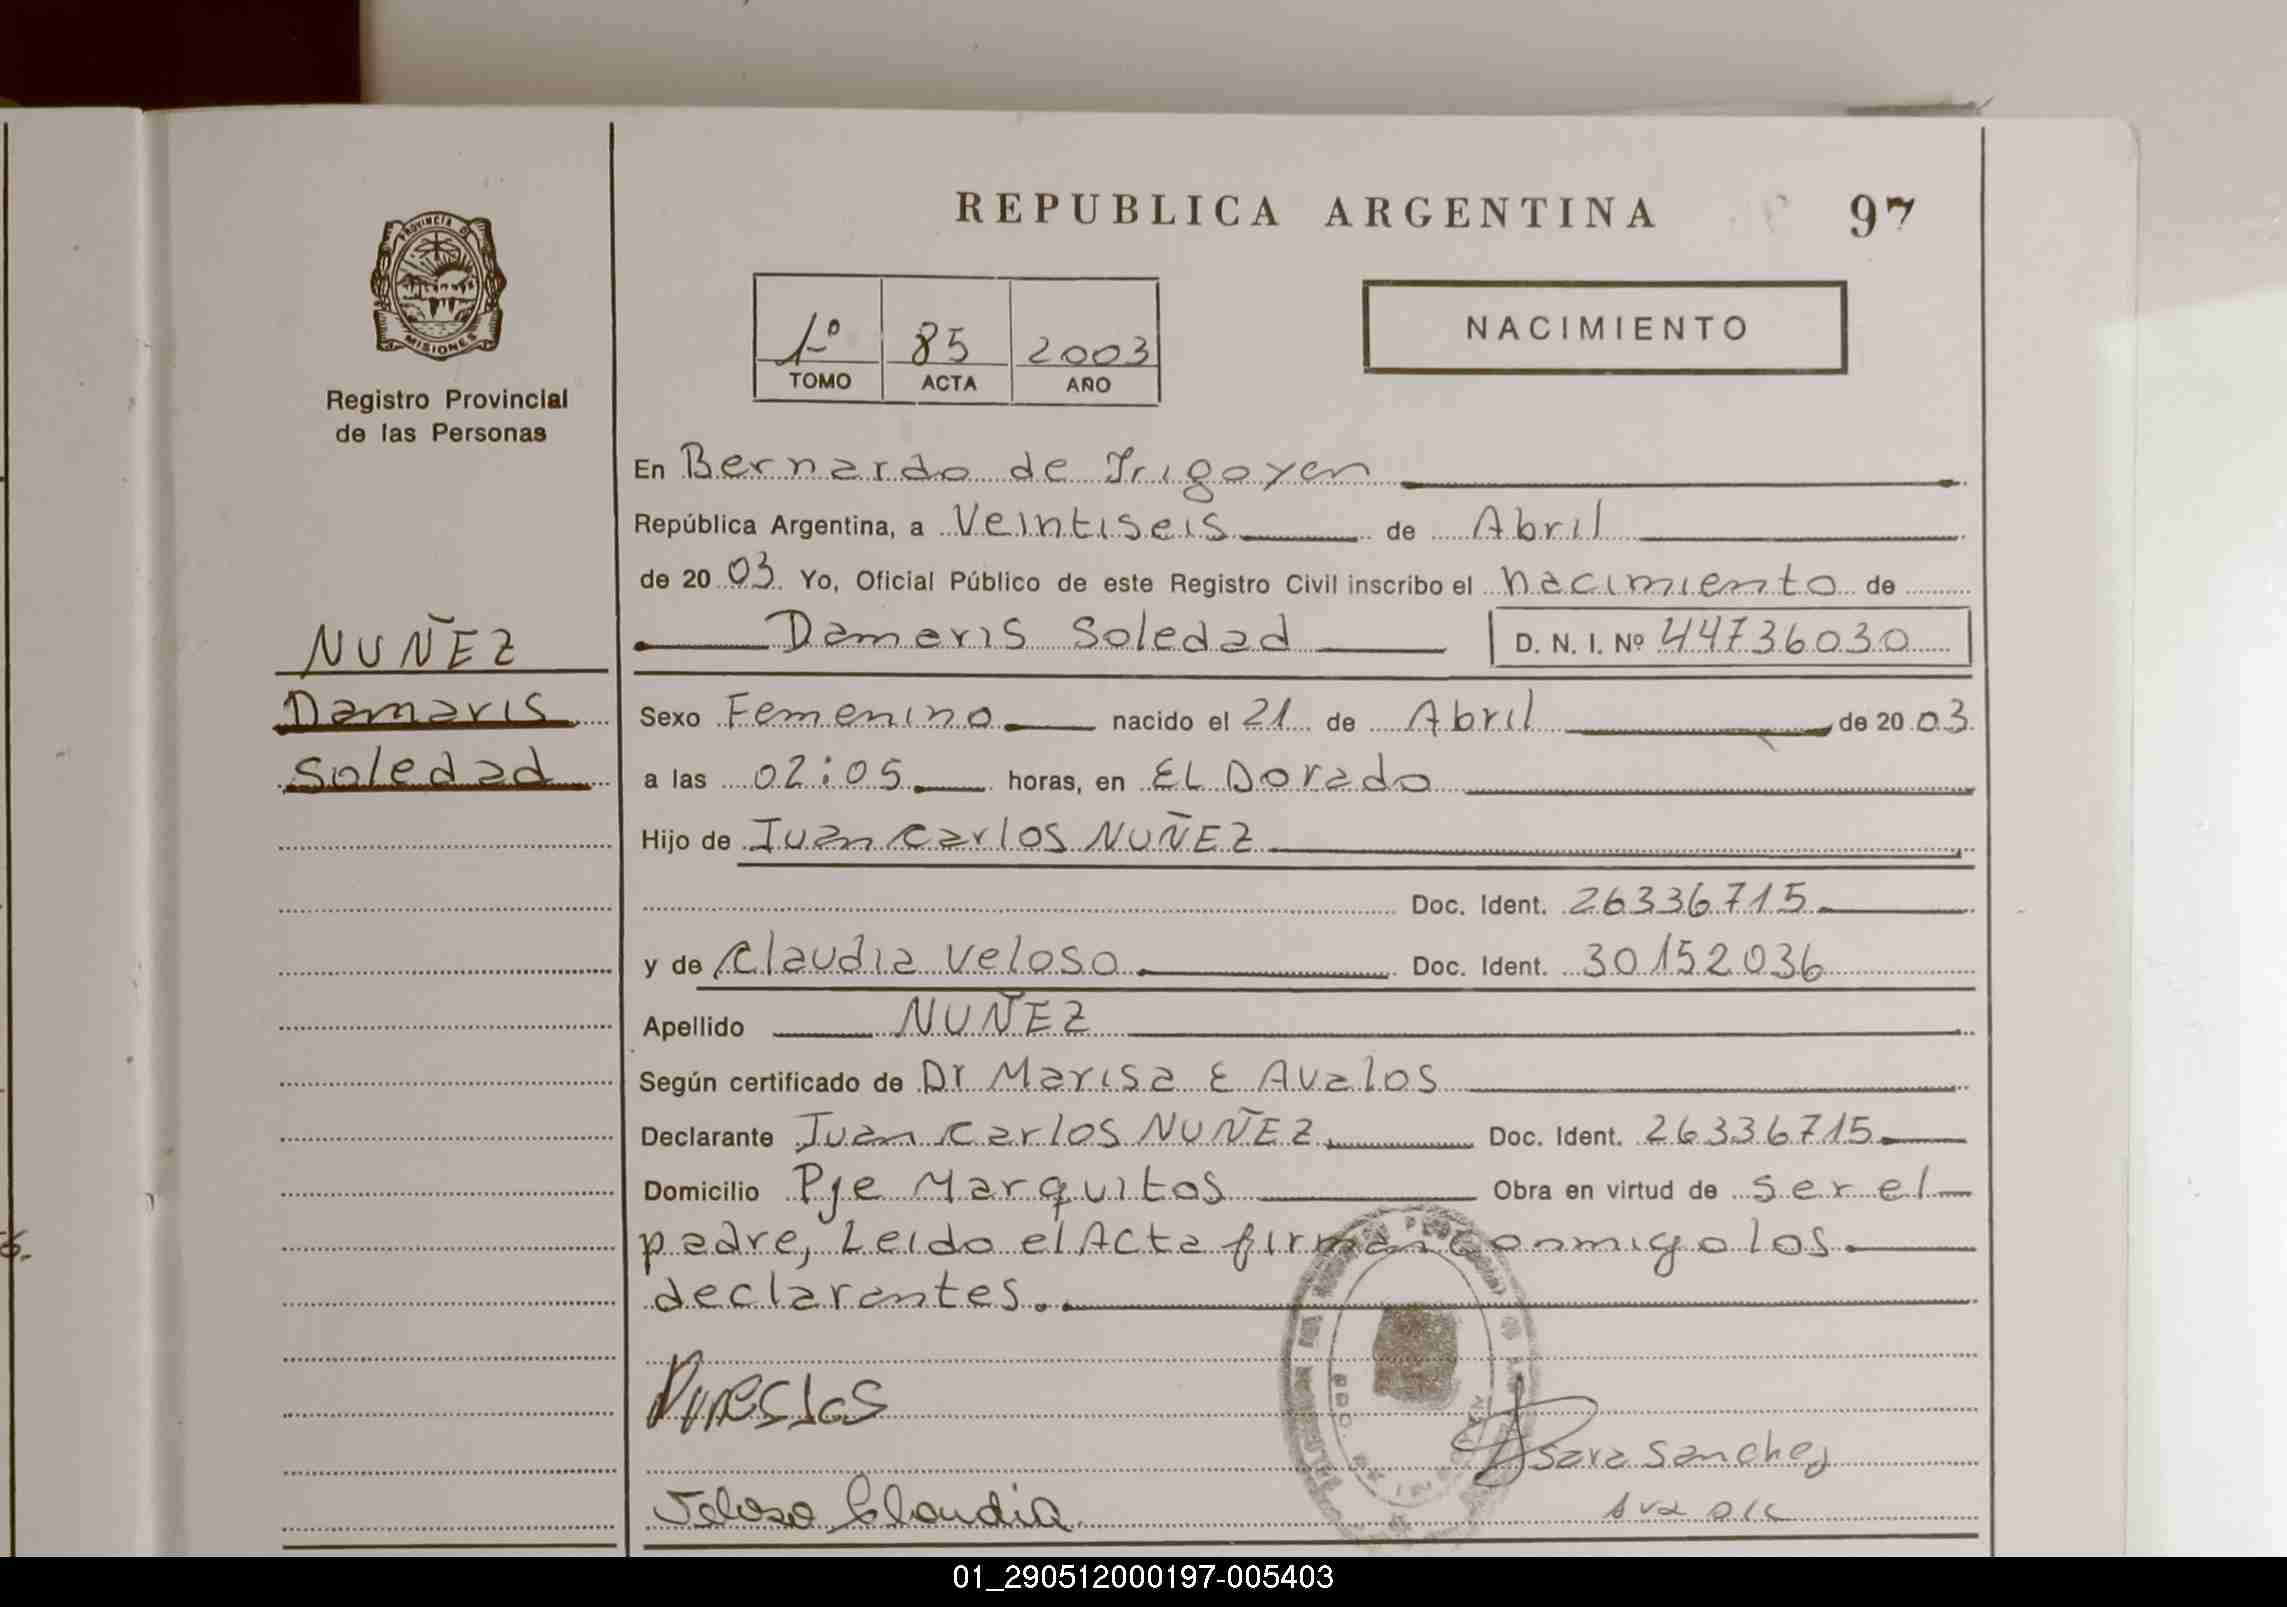 REPUBLICA ARGENTINA
97
PROVINCIA DE
MISIONES
Registro Provincial
de las Personas
1º 85 2003
TOMO ACTA AÑO
NACIMIENTO
En Bernardo de Irigoyen
República Argentina, a Veintiseis de Abril
de 20 03 Yo, Oficial Público de este Registro Civil inscribo el nacimiento de
Damaris Soledad D. N. I. Nº 44736030
NUÑEZ
Damaris
Soledad
Sexo Femenino nacido el 21 de Abril de 20 03
a las 02:05 horas, en EL Dorado
Hijo de Juan Carlos NUÑEZ
Doc. Ident. 26336715
y de Claudia Veloso Doc. Ident. 30152036
Apellido NUÑEZ
Según certificado de Dr Marisa E Avalos
Declarante Juan Carlos NUÑEZ Doc. Ident. 26336715
Domicilio Pje Marquitos Obra en virtud de ser el
padre, Leido el Acta firman conmigo los
declarantes.
Sara Sanchez
Veloso Claudia
01_290512000197-005403